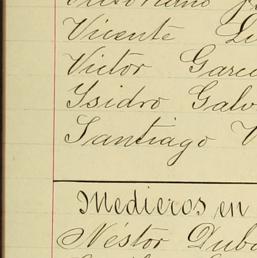 Vicente
Victor Garc
Isidro Galv
Santiago V
Medieros en
Néstor Dub